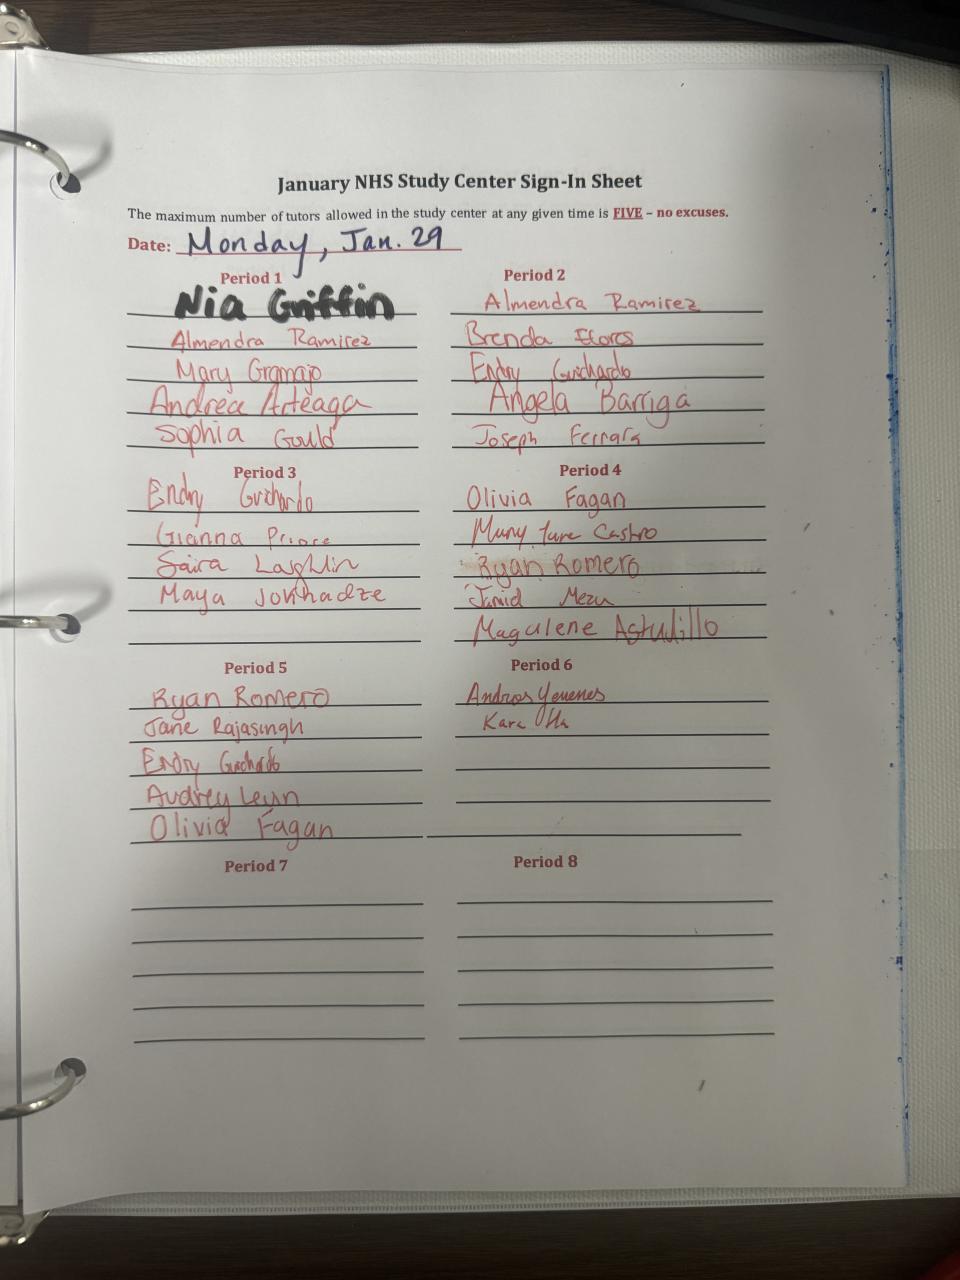 January NHS Study Center Sign-In Sheet
The maximum number of tutors allowed in the study center at any given time is FIVE – no excuses.
Date: Monday, Jan. 29
Period 1
Nia Griffin
Almendra Ramirez
Mary Gramajo
Andrea Arteaga
Sophia Gould
Period 2
Almendra Ramirez
Brenda Flores
Endry Guichardo
Angela Barriga
Joseph Ferrara
Period 3
Endry Guichardo
Gianna Priore
Saira Laghlin
Maya Jokhadze
Period 4
Olivia Fagan
Castro
Ryan Romero
Magalene Astudillo
Period 5
Ryan Romero
Jane Rajasingh
Endry Guichardo
Audrey
Olivia Fagan
Period 6
Andros Yemenes
Kara
Period 7
Period 8